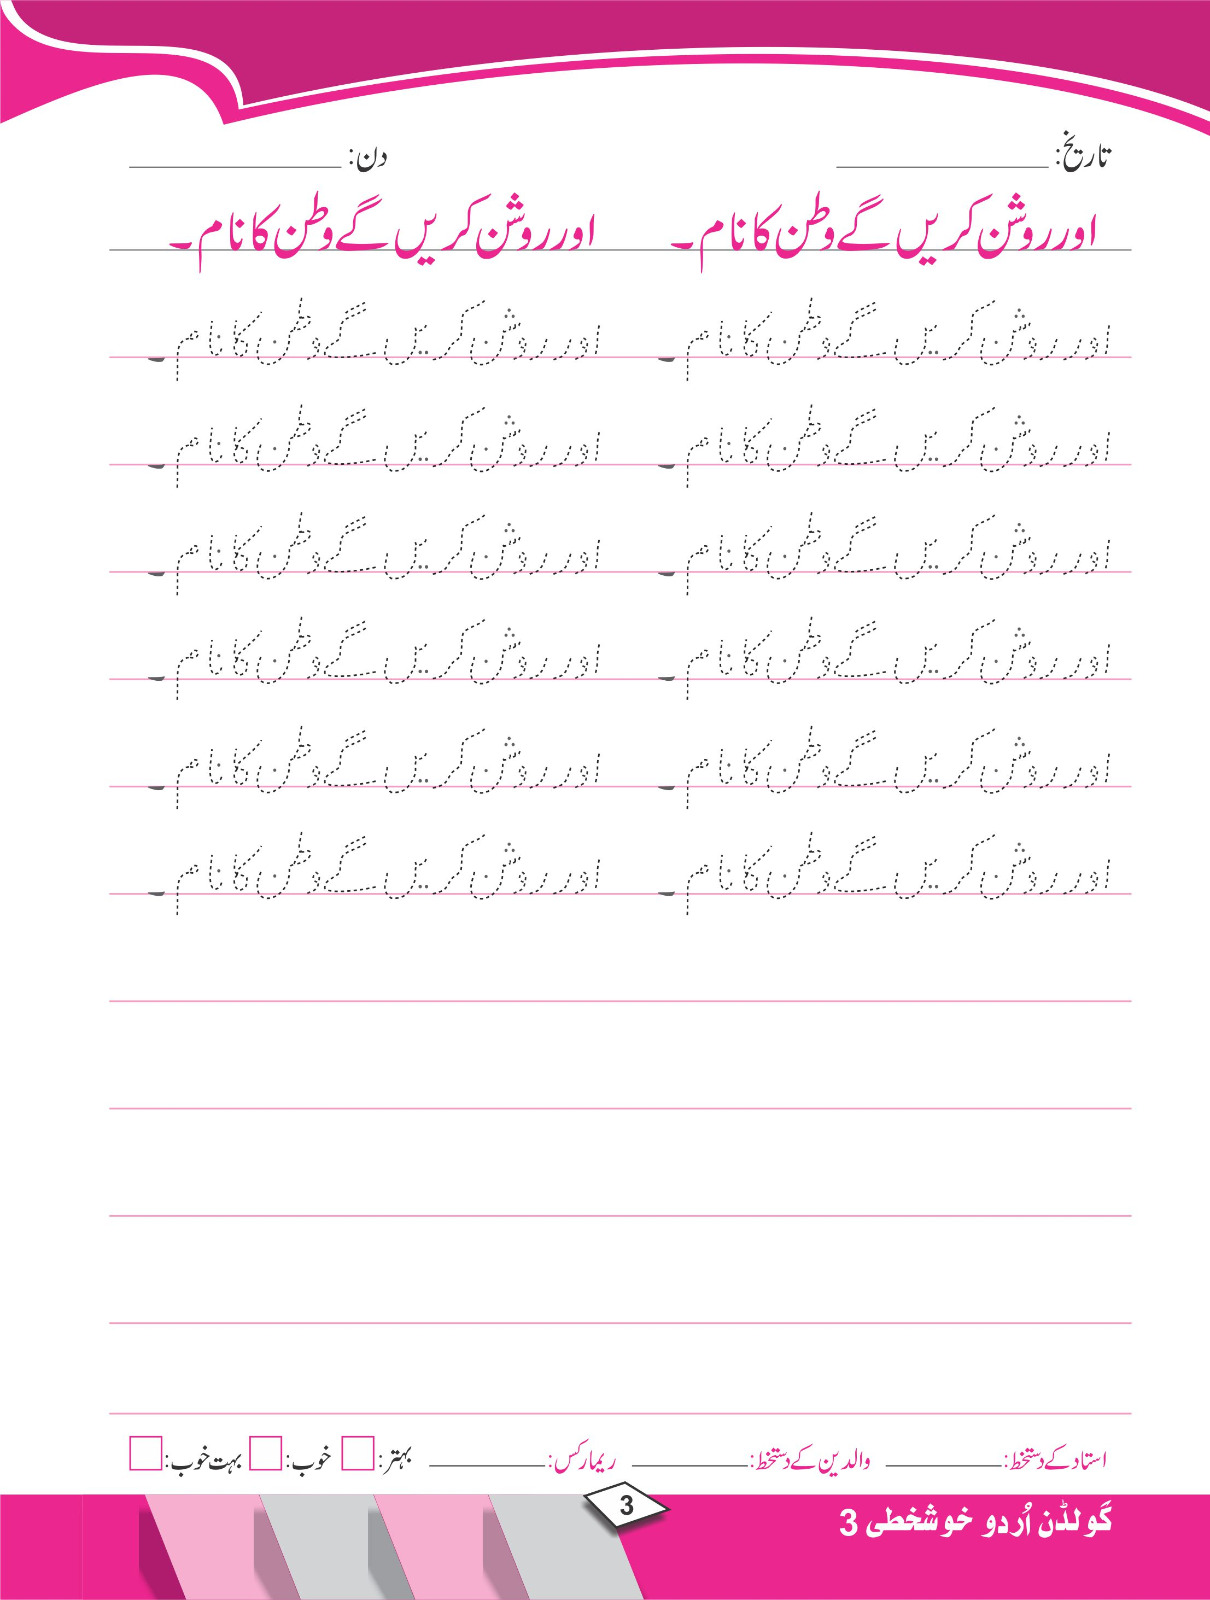 تاریخ: دن:
اور روشن کریں گے وطن کا نام۔ اور روشن کریں گے وطن کا نام۔
اور روشن کریں گے وطن کا نام۔ اور روشن کریں گے وطن کا نام۔
اور روشن کریں گے وطن کا نام۔ اور روشن کریں گے وطن کا نام۔
اور روشن کریں گے وطن کا نام۔ اور روشن کریں گے وطن کا نام۔
اور روشن کریں گے وطن کا نام۔ اور روشن کریں گے وطن کا نام۔
اور روشن کریں گے وطن کا نام۔ اور روشن کریں گے وطن کا نام۔
اور روشن کریں گے وطن کا نام۔ اور روشن کریں گے وطن کا نام۔
استاد کے دستخط: والدین کے دستخط: ریمارکس: بہتر: خوب: بہت خوب:
گولڈن اُردو خوشخطی 3
3